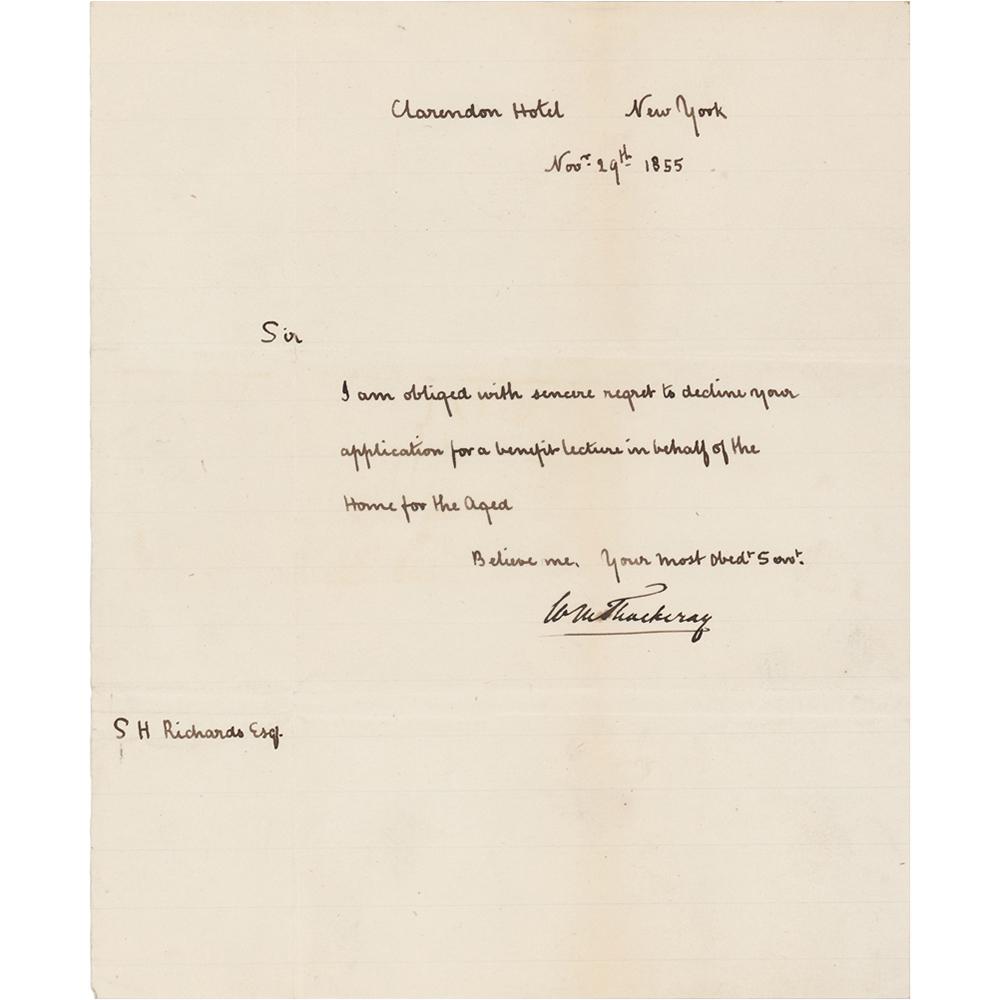 Clarendon Hotel New York
Novr. 29th 1855
Sir
I am obliged with sencere regret to decline your
application for a benefit lecture in behalf of the
Home for the Aged
Believe me, Your most Obedt Servt.
WM Thackeray
S H Richards Esq.